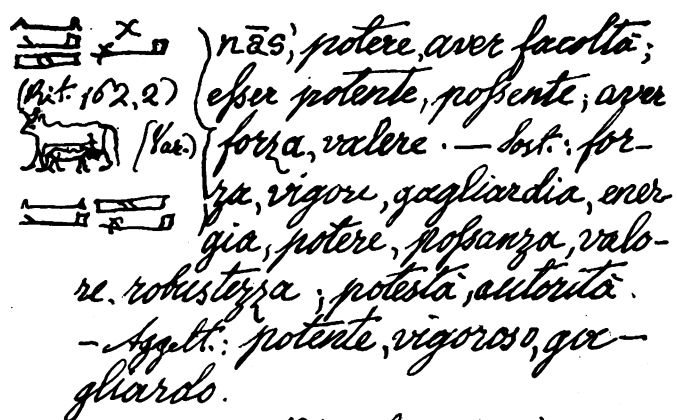 nās', potere, aver facoltà;
(Rit. 162, 2) eſser potente, poſsente; aver
(Var.) forza, valere. — Sost.: for-
za, vigore, gagliardia, ener-
gia, potere, poſsanza, valo-
re, robustezza; potestà, autorità.
— Aggett.: potente, vigoroso, ga-
gliardo.